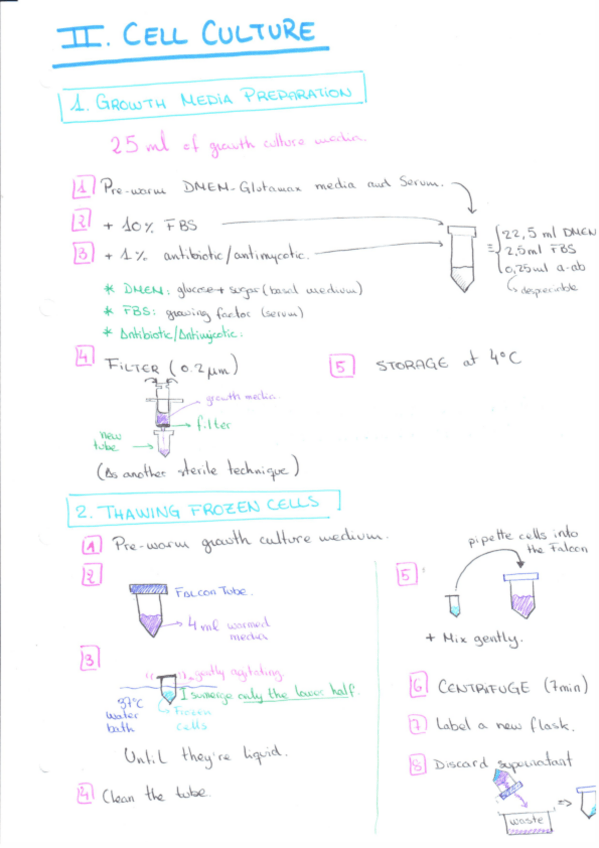 II. CELL CULTURE
1. GROWTH MEDIA PREPARATION
25 ml of growth culture media.
1 Pre-warm DMEN-Glutamax media and Serum.
2 + 10% FBS
3 + 1% antibiotic/antimycotic.
= { 22,5 ml DMEN
2,5 ml FBS
0,25 ml a-ab
↳ despreciable
* DMEN: glucose + sugar (basal medium)
* FBS: growing factor (serum)
* Antibiotic/Antimycotic:
4 FILTER (0.2 μm)
growth media
filter
new tube
(As another sterile technique)
5 STORAGE at 4°C
2. THAWING FROZEN CELLS
1 Pre-warm growth culture medium.
2
FALCON TUBE.
4 ml warmed
media
3
gently agitating.
sumerge only the lower half.
37°C
water
bath
Frozen
cells
Until they're liquid.
4 Clean the tube.
5
pipette cells into
the Falcon
+ Mix gently.
6 CENTRIFUGE (7min)
7 Label a new flask.
8 Discard supernatant
waste
=>